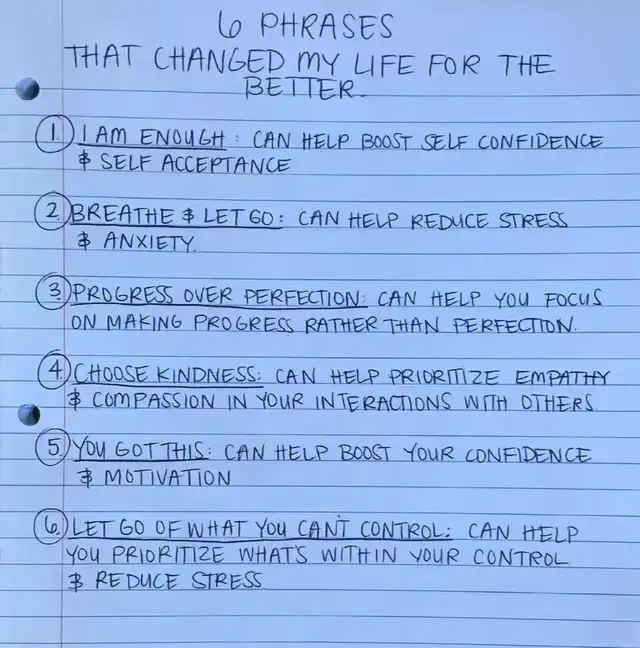 6 PHRASES
THAT CHANGED MY LIFE FOR THE
BETTER.
1. I AM ENOUGH: CAN HELP BOOST SELF CONFIDENCE
& SELF ACCEPTANCE
2. BREATHE & LET GO: CAN HELP REDUCE STRESS
& ANXIETY.
3. PROGRESS OVER PERFECTION: CAN HELP YOU FOCUS
ON MAKING PROGRESS RATHER THAN PERFECTION.
4. CHOOSE KINDNESS: CAN HELP PRIORITIZE EMPATHY
& COMPASSION IN YOUR INTERACTIONS WITH OTHERS.
5. YOU GOT THIS: CAN HELP BOOST YOUR CONFIDENCE
& MOTIVATION
6. LET GO OF WHAT YOU CAN'T CONTROL: CAN HELP
YOU PRIORITIZE WHAT'S WITHIN YOUR CONTROL
& REDUCE STRESS